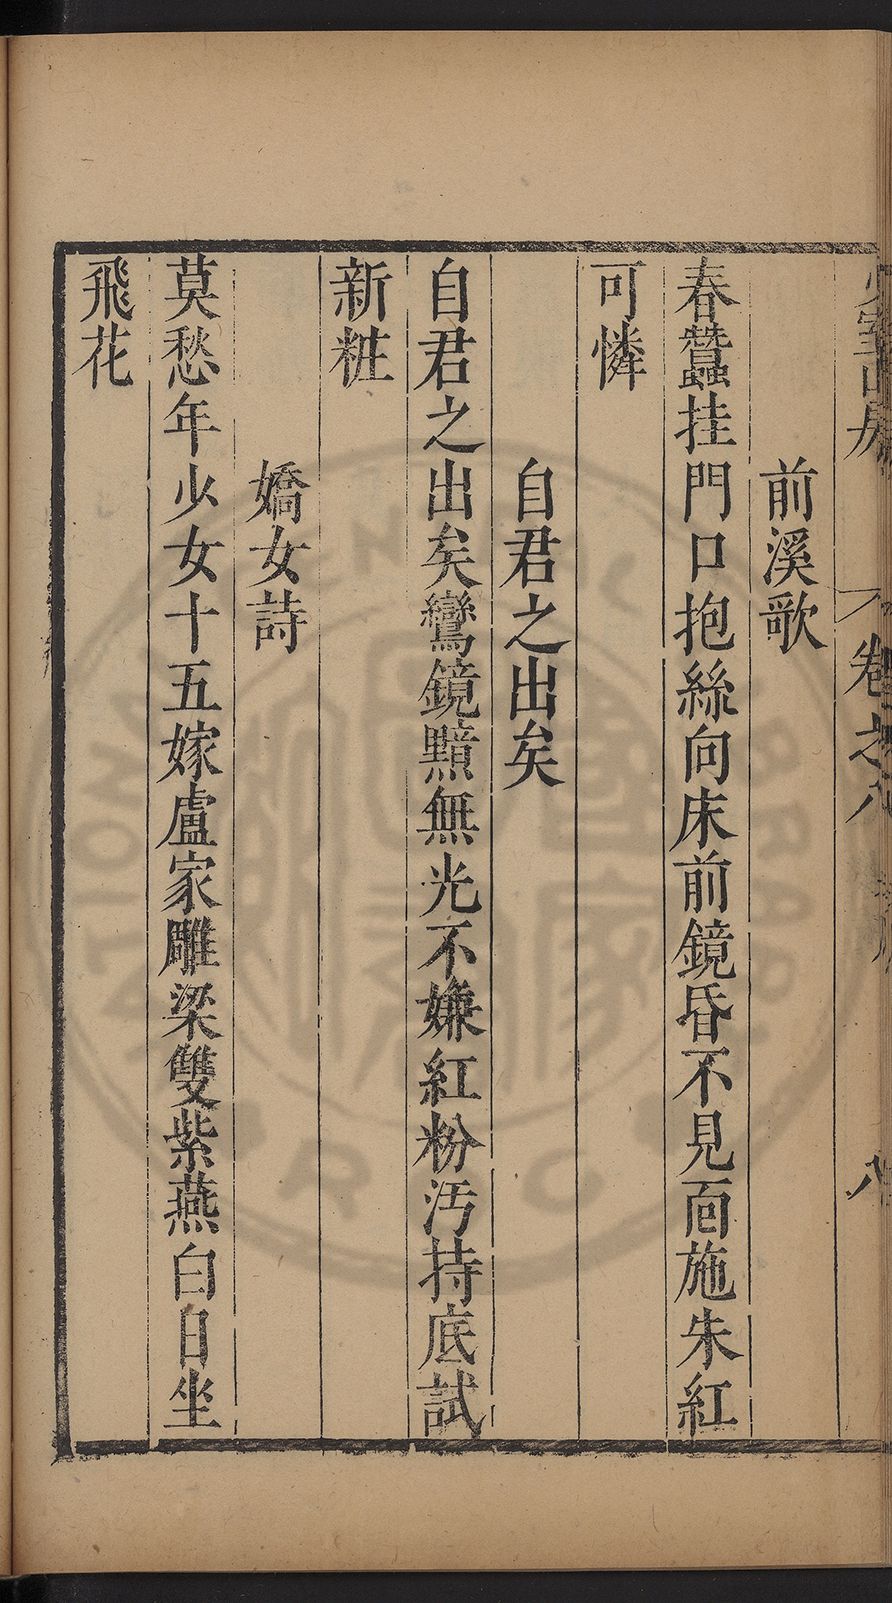 少室山房　卷之八　八
前溪歌
春蠶挂門口抱絲向床前鏡昏不見面施朱紅
可憐
自君之出矣
自君之出矣鸞鏡黯無光不嫌紅粉汚持底試
新粧
嬌女詩
莫愁年少女十五嫁盧家雕梁雙紫燕白日坐
飛花